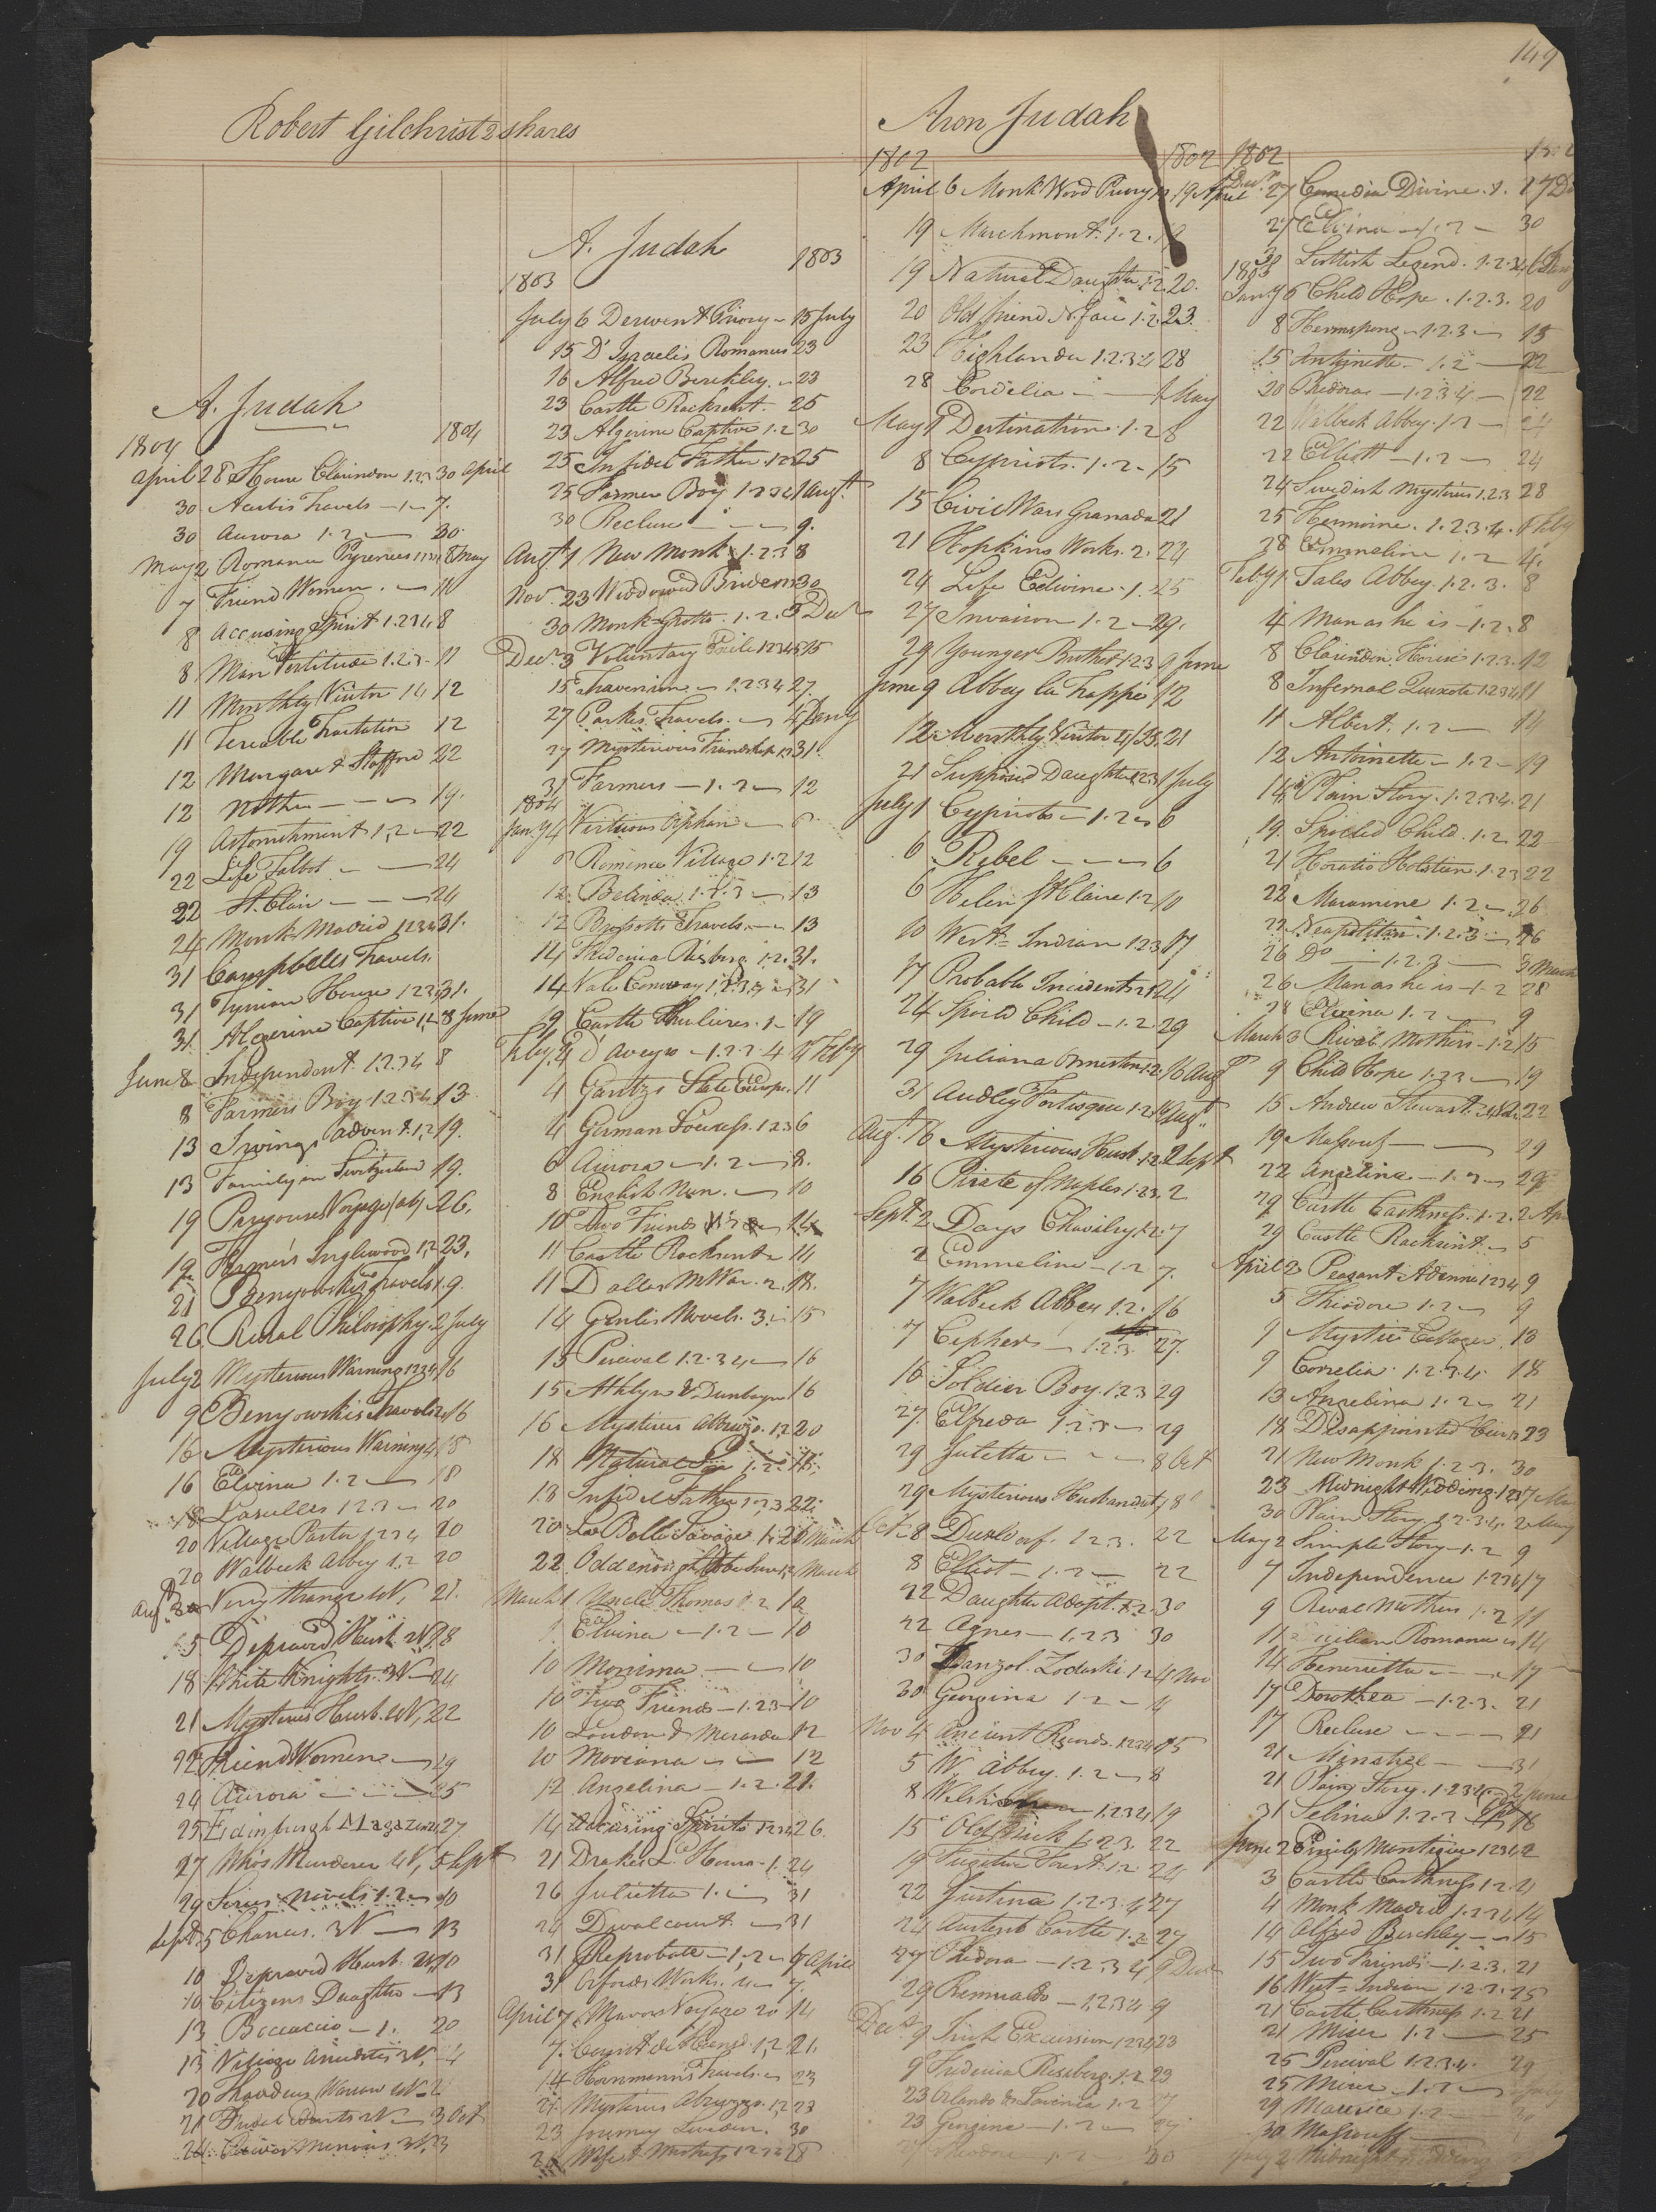 149
Robert Gilchrist 2 shares
A. Judah
1804 1804
April 28 House Clarindon 1.2.3 30 April
30 Travels — 1 — 7.
30 Aurora 1.2 — 30
May 2 Romance Pyrenees 8 May
7 Friend Women. — 11
8 Accusing Spirit 1.2.3.4 8
8 Man Fortitude 1.2.3. 11
11 Monthly Visitor 14 12
11 12
12 Margaret Stafford 22
12 Nothing — — 19.
19 Astonishment 1,2 — 22
22 Life Talbot — — 24
22 St. Clair — — — 24
24 Monk Madrid 1.2.3.4 31.
31 Campbells Travels.
31 Tynian House 31.
31 Algerine Captive 1,2 8 June
June 8 Independent 1.2.3.4 8
8 Farmers Boy 1.2.3.4 13
13 Irvings Advent. 1,2 19.
13 Family in Switzerland 19.
19 Voyage 26.
19 Farmer's Inglewood 1,2 23.
21 Benyowskis Travels 1. 9.
26 Rural Philosophy. 2 July
July 2 Mysterious Warning 1234 16
9 Benyowskis Travels 2 16
16 Mysterious Warning 4 18
16 Elvina 1.2 — 18
18 Lasselles 1.2.3 — 20
20 Village Pastor 1234 20
20 Walbeck Abbey 1.2 20
Augt. Very Strange 21.
15 Depraved Husb. 2V. 18
18 White Knights. 3V — 24
21 Mysterious Husb. 4V, 22
22 Friend Women — 29
24 Aurora — — 25
25 Edinburgh Magazine 27
27 Who's Murderer 4V, 5 Sept
29 Novels 1.2 — 10
Sept. 5 Chances. 3V — 13
10 Depraved Husb. 2V, 10
10 Citizens Daughter — 13
13 Boccaccio — 1. 20
13 Village Anecdotes 3V,
20 Thaddeus Warsaw 4V —
21 2V — 3 Oct
3V, 3
A. Judah
1803 1803
July 6 Derwent Priory — 15 July
15 D'Israelis Romances 23
16 Alfred Berekley. — 23
23 Castle Rackrent. 25
23 Algerine Captive 1.2 30
25 Infidel Father. 123 25
25 Farmer Boy 1.2.3.4 1 Augt.
30 Recluse — — 9.
Augt. 1 New Monk 1.2.3 8
Nov. 23 Widdowed Bride 30
30 Monk-Grotto. 1.2. 3 Decr
Decr. 3 Voluntary Exile 12345 15
15 — 1.2.3.4 27.
27 Parkes Travels. — 4 Jany
27 Mysterious Friendship 1.2 31.
31 Farmers — 1.2 — 12
1804
Jany 4 Virtuous Orphan —
Romance Village 1.2 12
12 Belinda. 1.2.3 — 13
12 Brissots Travels — 13
14 Fredericia Risberg. 1.2. 31.
14 Vale Conway 1.2.3.4 31
19 Castle 1 — 19
Feby. 4 d'Aveyro — 1.2.3.4 Feby
4 State Europe. 11
4 German 1.2.3 6
6 Aurora — 1.2 — 8.
8 English Nun. — 10
10 Two Friends 14
11 Castle Rackrent — 14
11 Dallas M War. 2. 18.
14 Genlis Novels. 3. 15
15 Percival 1.2.3.4 — 16
15 Athlyn & Dunbayn 16
16 Mysteries Abruzzo. 1,2 20
18 Natural Son 1.2 18
18 Infidel Father 1,2,3 22
20 La Belle Savage 1.2 1 March
22 March
March 1 Uncle Thomas 1.2 10
1 Elvina — 1.2 — 10
10 Monima — — 10
10 Two Friends — 1.2.3 — 10
10 Loudon & Meranda 12
10 Mooriana — 12
12 Angelina — 1.2. 21.
14 Accusing Spirits 1.2.3.4 26.
21 Drakes L. House. 1. 24
26 Julietta 1. — 31
24 Duvalcourt — 31
31 Reprobate — 1,2 — 7 April
31 Orfords Works. 4 — 7.
April 7. Mavors Voyage 20 14
7. Count de 1,2 21.
14 Hornmanns Travels — 23
21 Mysteries Abruzzo. 1,2 23
23 Journey Sweden. 30
Wife & Mistress 1.2.3.4 28
Aron Judah
1802 1802
April 6 Monk Wood Priory 19 April
19 Marchmont. 1.2.
19 Natural Daughter 1.2. 20.
20 Old friend N face 1.2. 23.
23 Highlander 1.2.3.4 28
28 Cordelia — — 1 May
May 1 Destination. 1.2 8
8 Cypriots. 1.2 — 15
15 Civil Wars Granada 21
21 Hopkins Works. 2. 24
24 Life Edwine. 1. 25
27 Invasion 1.2 — 29.
29 Younger Brother 1.2.3 9 June
June 9 Abbey la Trappe 12
12 Monthly Visitor 21
21 Supposed Daughter 1.2.3 1 July
July 1 Cypriots — 1.2 — 6
6 Rebel — — — 6
6 Helen St Claire 1.2 10
10 West-Indian 1.2.3 17
17 Probable Incidents 1.2 24
24 Spoild Child — 1.2 29
29 Juliana Ormeston 1.2. 16 Augt
31 Audley Fortisque 1.2 16 Augt.
Augt. 16 Mysterious Husb. 1.2. 2 Sept
16 Pirate of Naples 1.2.3. 2
Sept. 2 Days Chavilry 1.2. 7
2 Emmeline — 1.2 7.
7 Walbeck Abbey 1.2. 16
7 Ciphers — 1.2.3. 27.
16 Soldier Boy. 1.2.3 29
27 Elfreda 1.2.3 — 29
29 Juletta — — — 8 Oct
29 Mysterious Husband 8
Oct. 8 Dusseldorf. 1.2.3. 22
8 Elliot — 1.2 — 22
22 Daughter Adopt. 1.2. 30
22 Agnes — 1.2.3 30
30 Zodaski 1.2 4 Nov
30 Georgina 1.2 — 4
Nov 4 Ancient Records. 1.2.3.4 15
5 W. Abbey. 1.2 — 8
8 1.2.3.4 19
15 Old 1.2.3. 22
19 Fugitive Forest. 1.2 24
22 Justina 1.2.3.4 27
24 Austenb Castle 1.2 27
27 Phedora — 1.2.3.4 9 Decr
29 Romualdo — 1.2.3.4 9
Decr. 9 Irish Excursion 1.2.3.4 23
9 Fredericia Risberg. 1.2 23
23 Orlando & Lavinia 1.2
23 Georgina — 1.2 —
Theodore 30
1802 1802
Decr. 27 Comedia Divine. 1. 27 De
27 Elvina — 1.2 — 30
30 Scottish Legend. 1.2.3.4 6 Jany
1803
Jany. 6 Child Hope. 1.2.3. 20
8 Hermsprong — 1.2.3 — 15
15 Antoinette — 1.2 — 22
20 Phedora — 1.2.3.4 — 22
22 Walbeck Abbey. 1.2 — 24
22 Elliott — 1.2 — 24
24 Swedish Mysteries 1.2.3 28
25 Hermione. 1.2.3.4. 1 Feby
28 Emmeline 1.2 4.
Feby 1. Sales Abbey. 1.2.3. 8
4 Man as he is — 1.2. 8
8 Clarindon House 1.2.3. 12
8 Infernal Quixote 1.2.3.4 11
11 Albert. 1.2 — 14
12 Antoinette — 1.2 — 19
14 Plain Story. 1.2.3.4. 21
19. Spoiled Child. 1.2 22
21 Horatio Holstien. 1.2.3 22
22 Maramine 1.2 — 26
22 Neapolitan. 1.2.3 — 26
26 Do — 1.2.3 — 3 March
26 Man as he is — 1.2 28
28 Elvina 1.2 — 9
March 3 Rival Mothers — 1.2 15
9 Child Hope 1.2.3 — 19
15 Andrew Stewart. 22
19 Massouf — — 29
22 Angelina — 1.2 — 29
29 Castle Caithness. 1.2. 2 Ap
29 Castle Rackrent. — 5
April 2 Peasant Ardenne 1.2.3.4 9
5 Theodore 1.2 — 9
9 Mystic Cottager. 13
9 Correlia. 1.2.3.4. 18
13 Angelina 1.2 — 21
18 Disappointed Heir 1.2 23
21 New Monk 1.2.3. 30
23 Midnight Wedding. 1.2.3 7 Ma
30 Plain Story. 1.2.3.4. 2 May
May 2 Simple Story — 1.2 9
7 Independence 1.2.3.4 17
9 Rival Mothers 1.2 11
11 Sicilian Romance — 14
14 Henerietta — — 17
17 Dorothea — 1.2.3. 21
17 Recluse — — — 21
21 Minstrel — — 31
21 Plain Story. 1.2.3.4 — 2 June
31 Selina 1.2.3 16
June 2 Emily Montigue 1.2.3.4 2
3 Castle Caithness 1.2. 21
4 Monk Madrid 1.2.3.4 14
14 Alfred Berekley — — 15
15 Two Friends — 1.2.3. 21
16 West-Indian 1.2.3. 25
21 Castle Caithness 1.2 21
21 Miser 1.2 — 25
25 Percival 1.2.3.4. 29
25 Miser — 1.2 —
29 Maurice 1.2
30 Massouff
July 2 Midnight Wedding